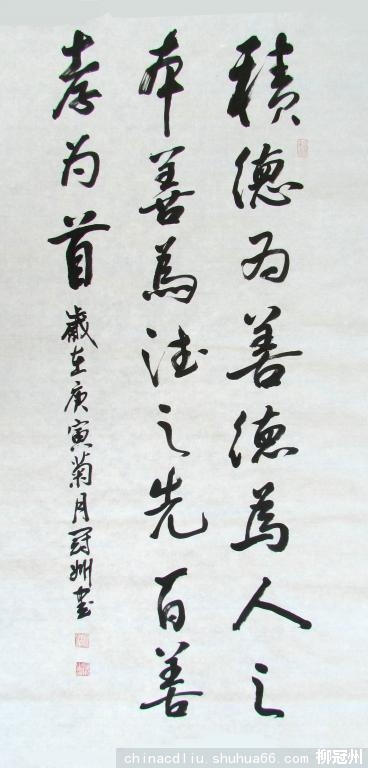 積德为善德為人之
本善為德之先百善
孝为首
歲在庚寅菊月冠州書
chinacdliu.shuhua66.com 柳冠州